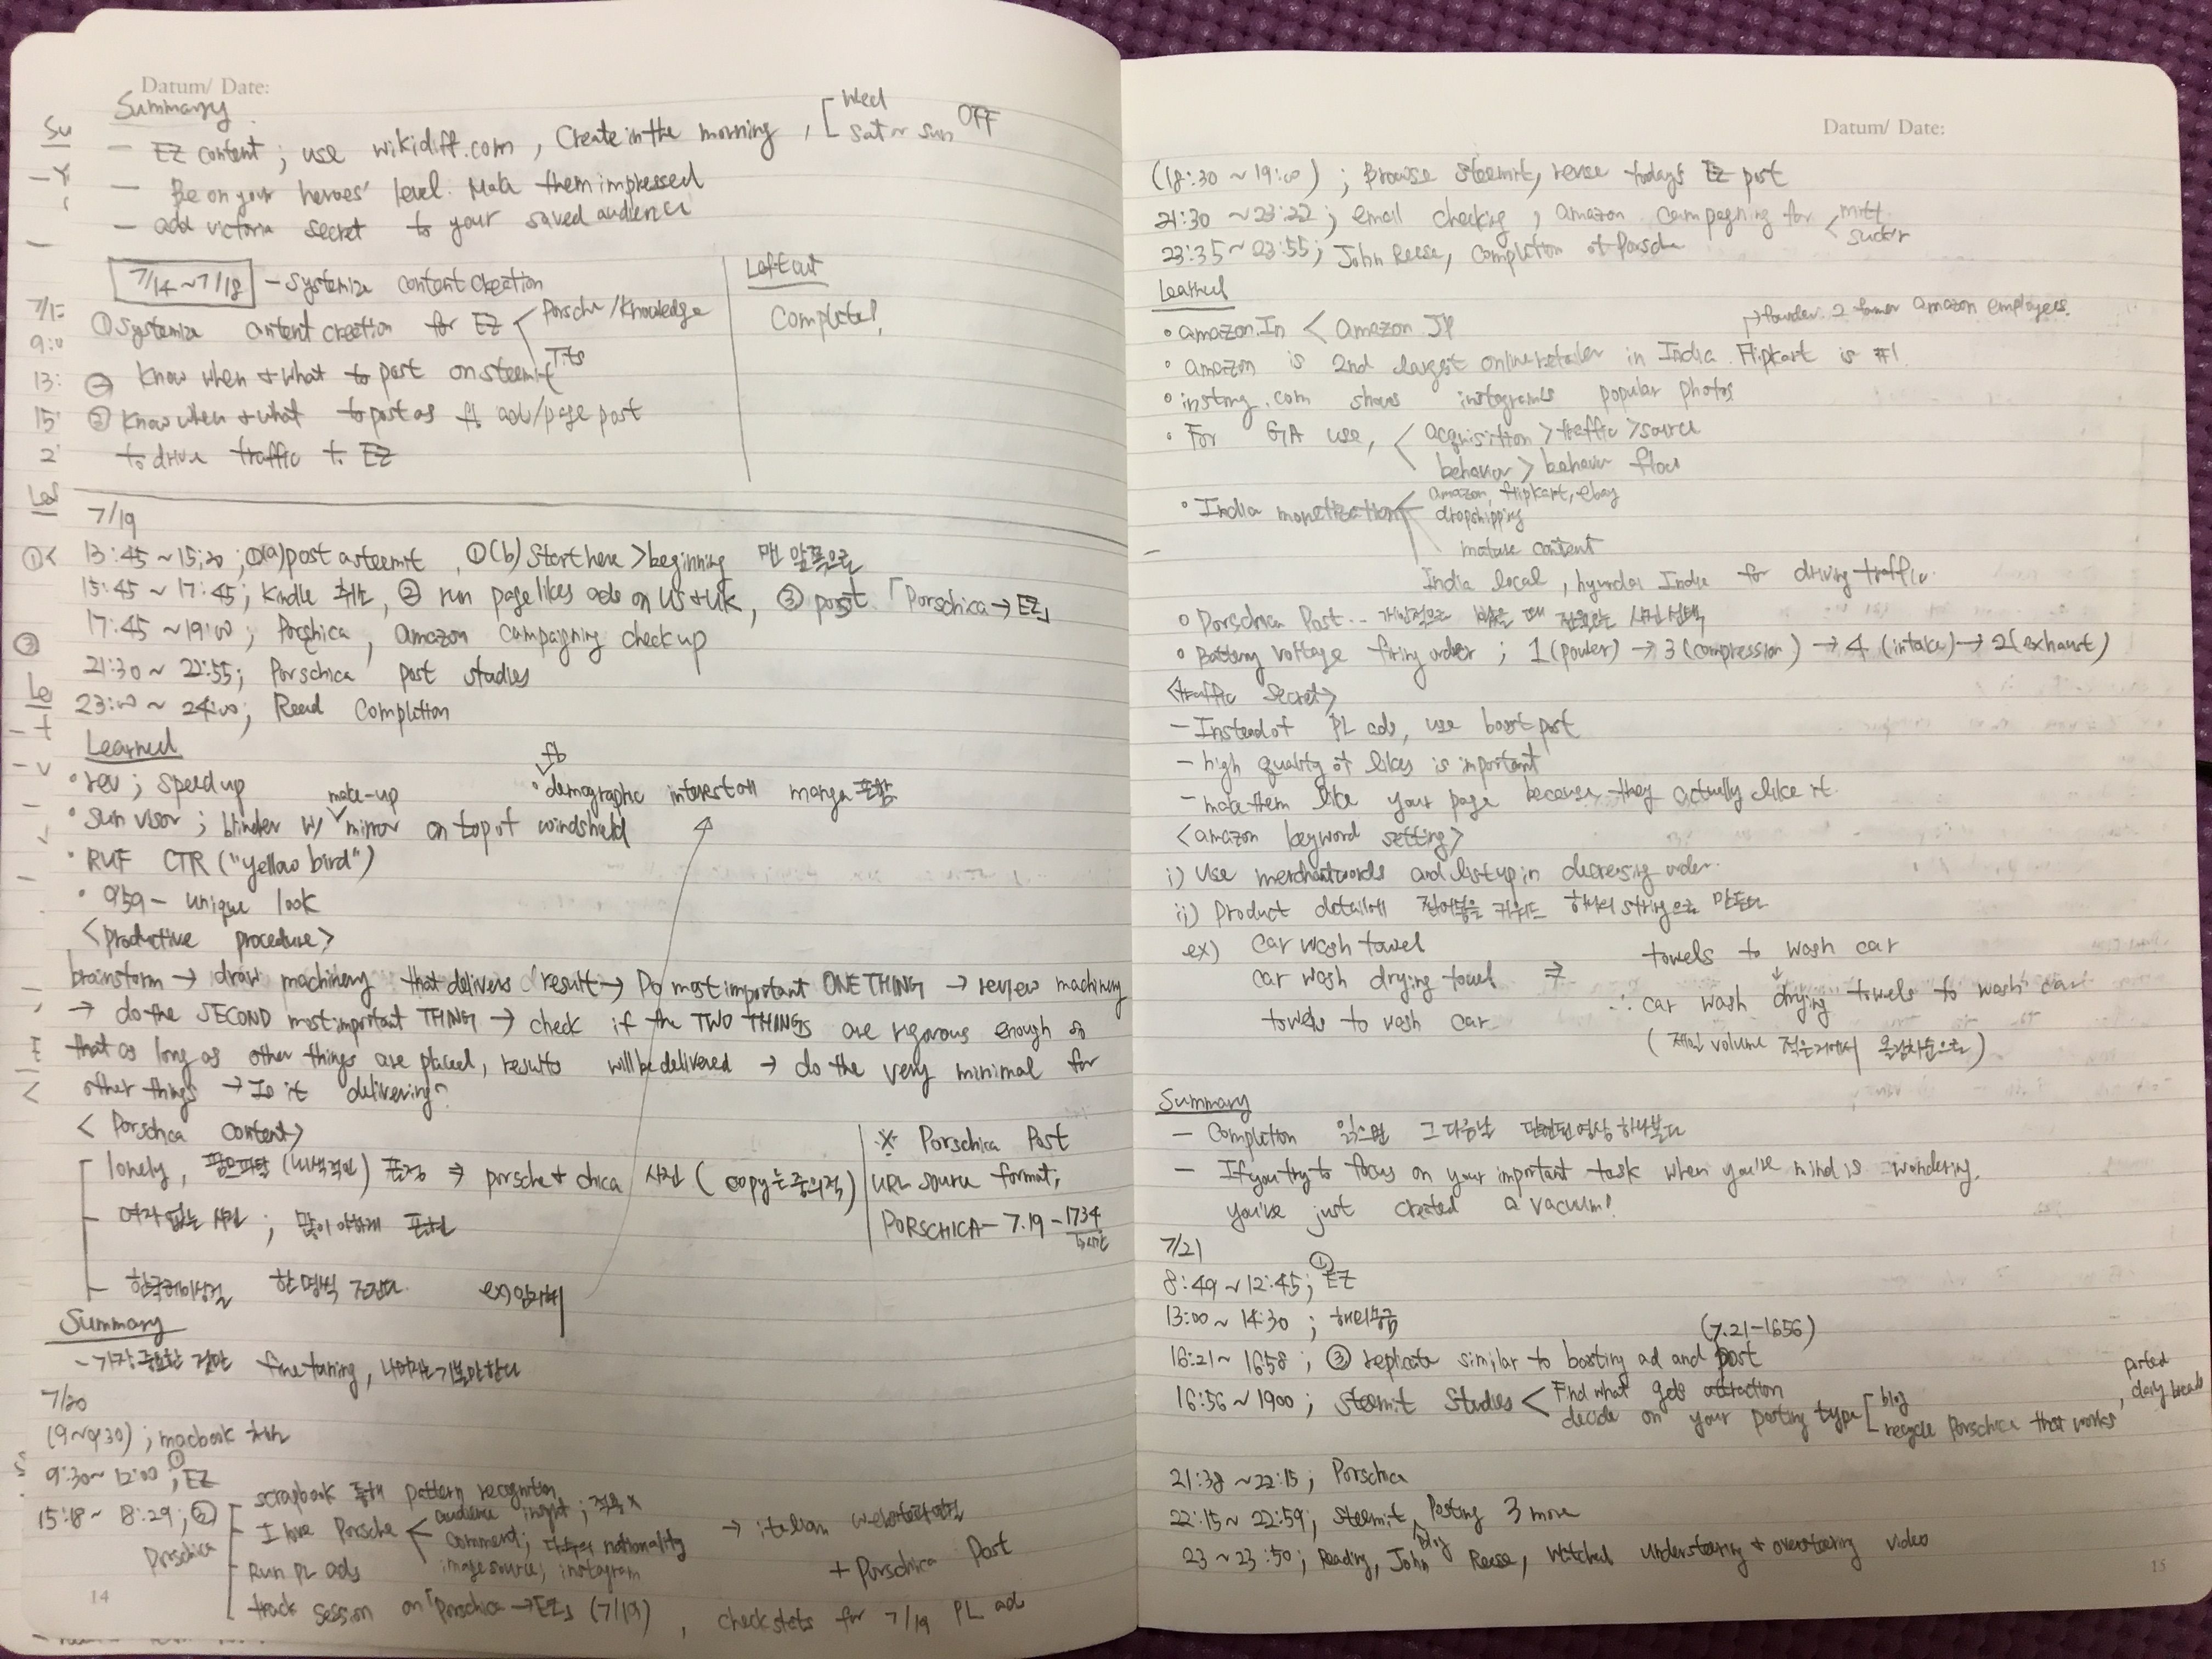 Datum/ Date:
Summary
- EZ content ; use wikidiff.com , Create in the morning , [ Wed
Sat ~ Sun OFF
- Be on your heroes' level. Make them impressed
- add victoria secret to your saved audience
7/14 ~ 7/18 - Systemize content creation
① Systemize content creation for EZ < Porsche / Knowledge
Tits
② Know when & what to post on steemit
③ Know when & what to post as fb ads/page post
to drive traffic to EZ
Left out
Complete!
7/19
13:45 ~ 15:20 ; ①(a) post asteemit , ①(b) Start here > beginning 맨 앞쪽으로
15:45 ~ 17:45 ; Kindle 취소, ② run page likes ads on US & UK, ③ post 「Porschica → EZ」
17:45 ~ 19:00 ; Porschica , amazon campaigning check up
21:30 ~ 22:55 ; Porschica post studies
23:00 ~ 24:00 ; Read Completion
Learned
• rev ; speed up
• sun visor ; blinder w/ make-up mirror on top of windshield
• fb demographic interest에 manga 포함
• RUF CTR ("yellow bird")
• 959 - unique look
<productive procedure>
brainstorm → draw machinery that delivers result → Do most important ONE THING → review machinery
→ do the SECOND most important THING → check if the TWO THINGS are rigorous enough so
that as long as other things are placed, results will be delivered → do the very minimal for
other things → Is it delivering?
< Porschica content>
lonely, (사색적인) 표정 ⇒ porsche & chica 사진 ( copy는 중의적)
- 여자 없는 사진 ; 많이 야하게 표현
- 한국 레이싱걸 한명씩 ex) 임지혜
※ Porschica Post
URL source format;
PORSCHICA - 7.19 - 1734
Summary
- 가장 중요한 것만 fine tuning, 나머지는 기본만 한다
7/20
(9~9:30) ; macbook
9:30 ~ 12:00 ; ① EZ
15:18 ~ 18:29 ; ② Porschica
scrapbook 통해 pattern recognition
- I love Porsche < audience insight ; 적용 x
comment; 다수의 nationality → italian
image source; instagram
+ Porschica Post
- Run PL ads
track session on 「Porschica → EZ」 (7/19) , check stats for 7/19 PL ad
14
Datum/ Date:
(18:30 ~ 19:00) ; Browse Steemit, revise today's EZ post
21:30 ~ 23:22 ; email checking , amazon campaigning for < mitt
23:35 ~ 23:55 ; John Reese, Completion of Porsche
Learned
• amazon.In < amazon JP
• amazon is 2nd largest online retailer in India. Flipkart is #1.
→ founder 2 former amazon employees.
• shows instagram's popular photos
• For GA use, < acquisition > traffic > source
behavior > behavior flow
• India monetization < amazon, flipkart, ebay
dropshipping
mature content
India local , hyundai India for driving traffic
• Porschica Post .. 개인적으로 봤을 때 사진 선택
• Battery voltage firing order ; 1 (power) → 3 (compression) → 4 (intake) → 2 (exhaust)
<traffic secret>
- Instead of PL ads, use boost post
- high quality of likes is important
- make them like your page because they actually like it.
<amazon keyword setting>
i) Use merchantwords and list up in decreasing order.
ii) Product detail에 집어넣을 키워드 하나의 string으로 만든다
ex) car wash towel
car wash drying towel ⇒
towels to wash car
towels to wash car
∴ car wash drying towels to wash car
( 제일 volume 적은거에서 올림차순으로)
Summary
- Completion 읽으면 그 다음날 관련된 영상 하나 본다
- If you try to focus on your important task when you're mind is wondering.
you've just created a vacuum!
7/21
8:49 ~ 12:45 ; ① EZ
13:00 ~ 14:30 ; 해외송금
16:21 ~ 1658 ; ③ replicate similar to boosting ad and post (7.21-1656)
16:56 ~ 1900 ; Steemit Studies < Find what gets attraction
decide on your posting type [ blog
recycle Porschica that works , ported daily bread
21:38 ~ 22:15 ; Porschica
22:15 ~ 22:59 ; Steemit blog Posting 3 more
23 ~ 23:50 ; Reading, John Reese, Watched understeering & oversteering video
15